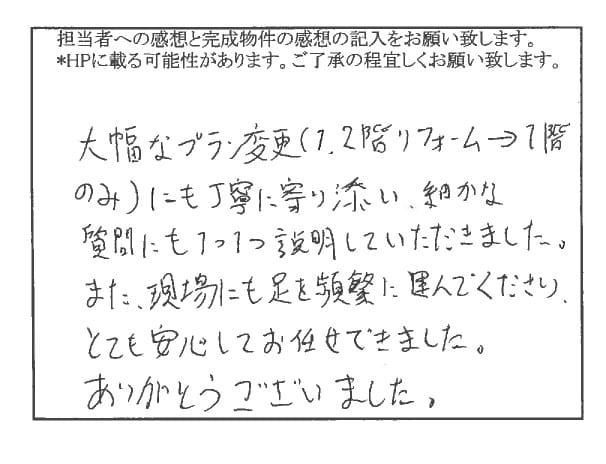 担当者への感想と完成物件の感想の記入をお願い致します。
*HPに載る可能性があります。ご了承の程宜しくお願い致します。
大幅なプラン変更(1.2階リフォーム→1階
のみ)にも丁寧に寄り添い、細かな
質問にも1つ1つ説明していただきました。
また、現場にも足を頻繁に運んでくださり、
とても安心してお任せできました。
ありがとうございました。